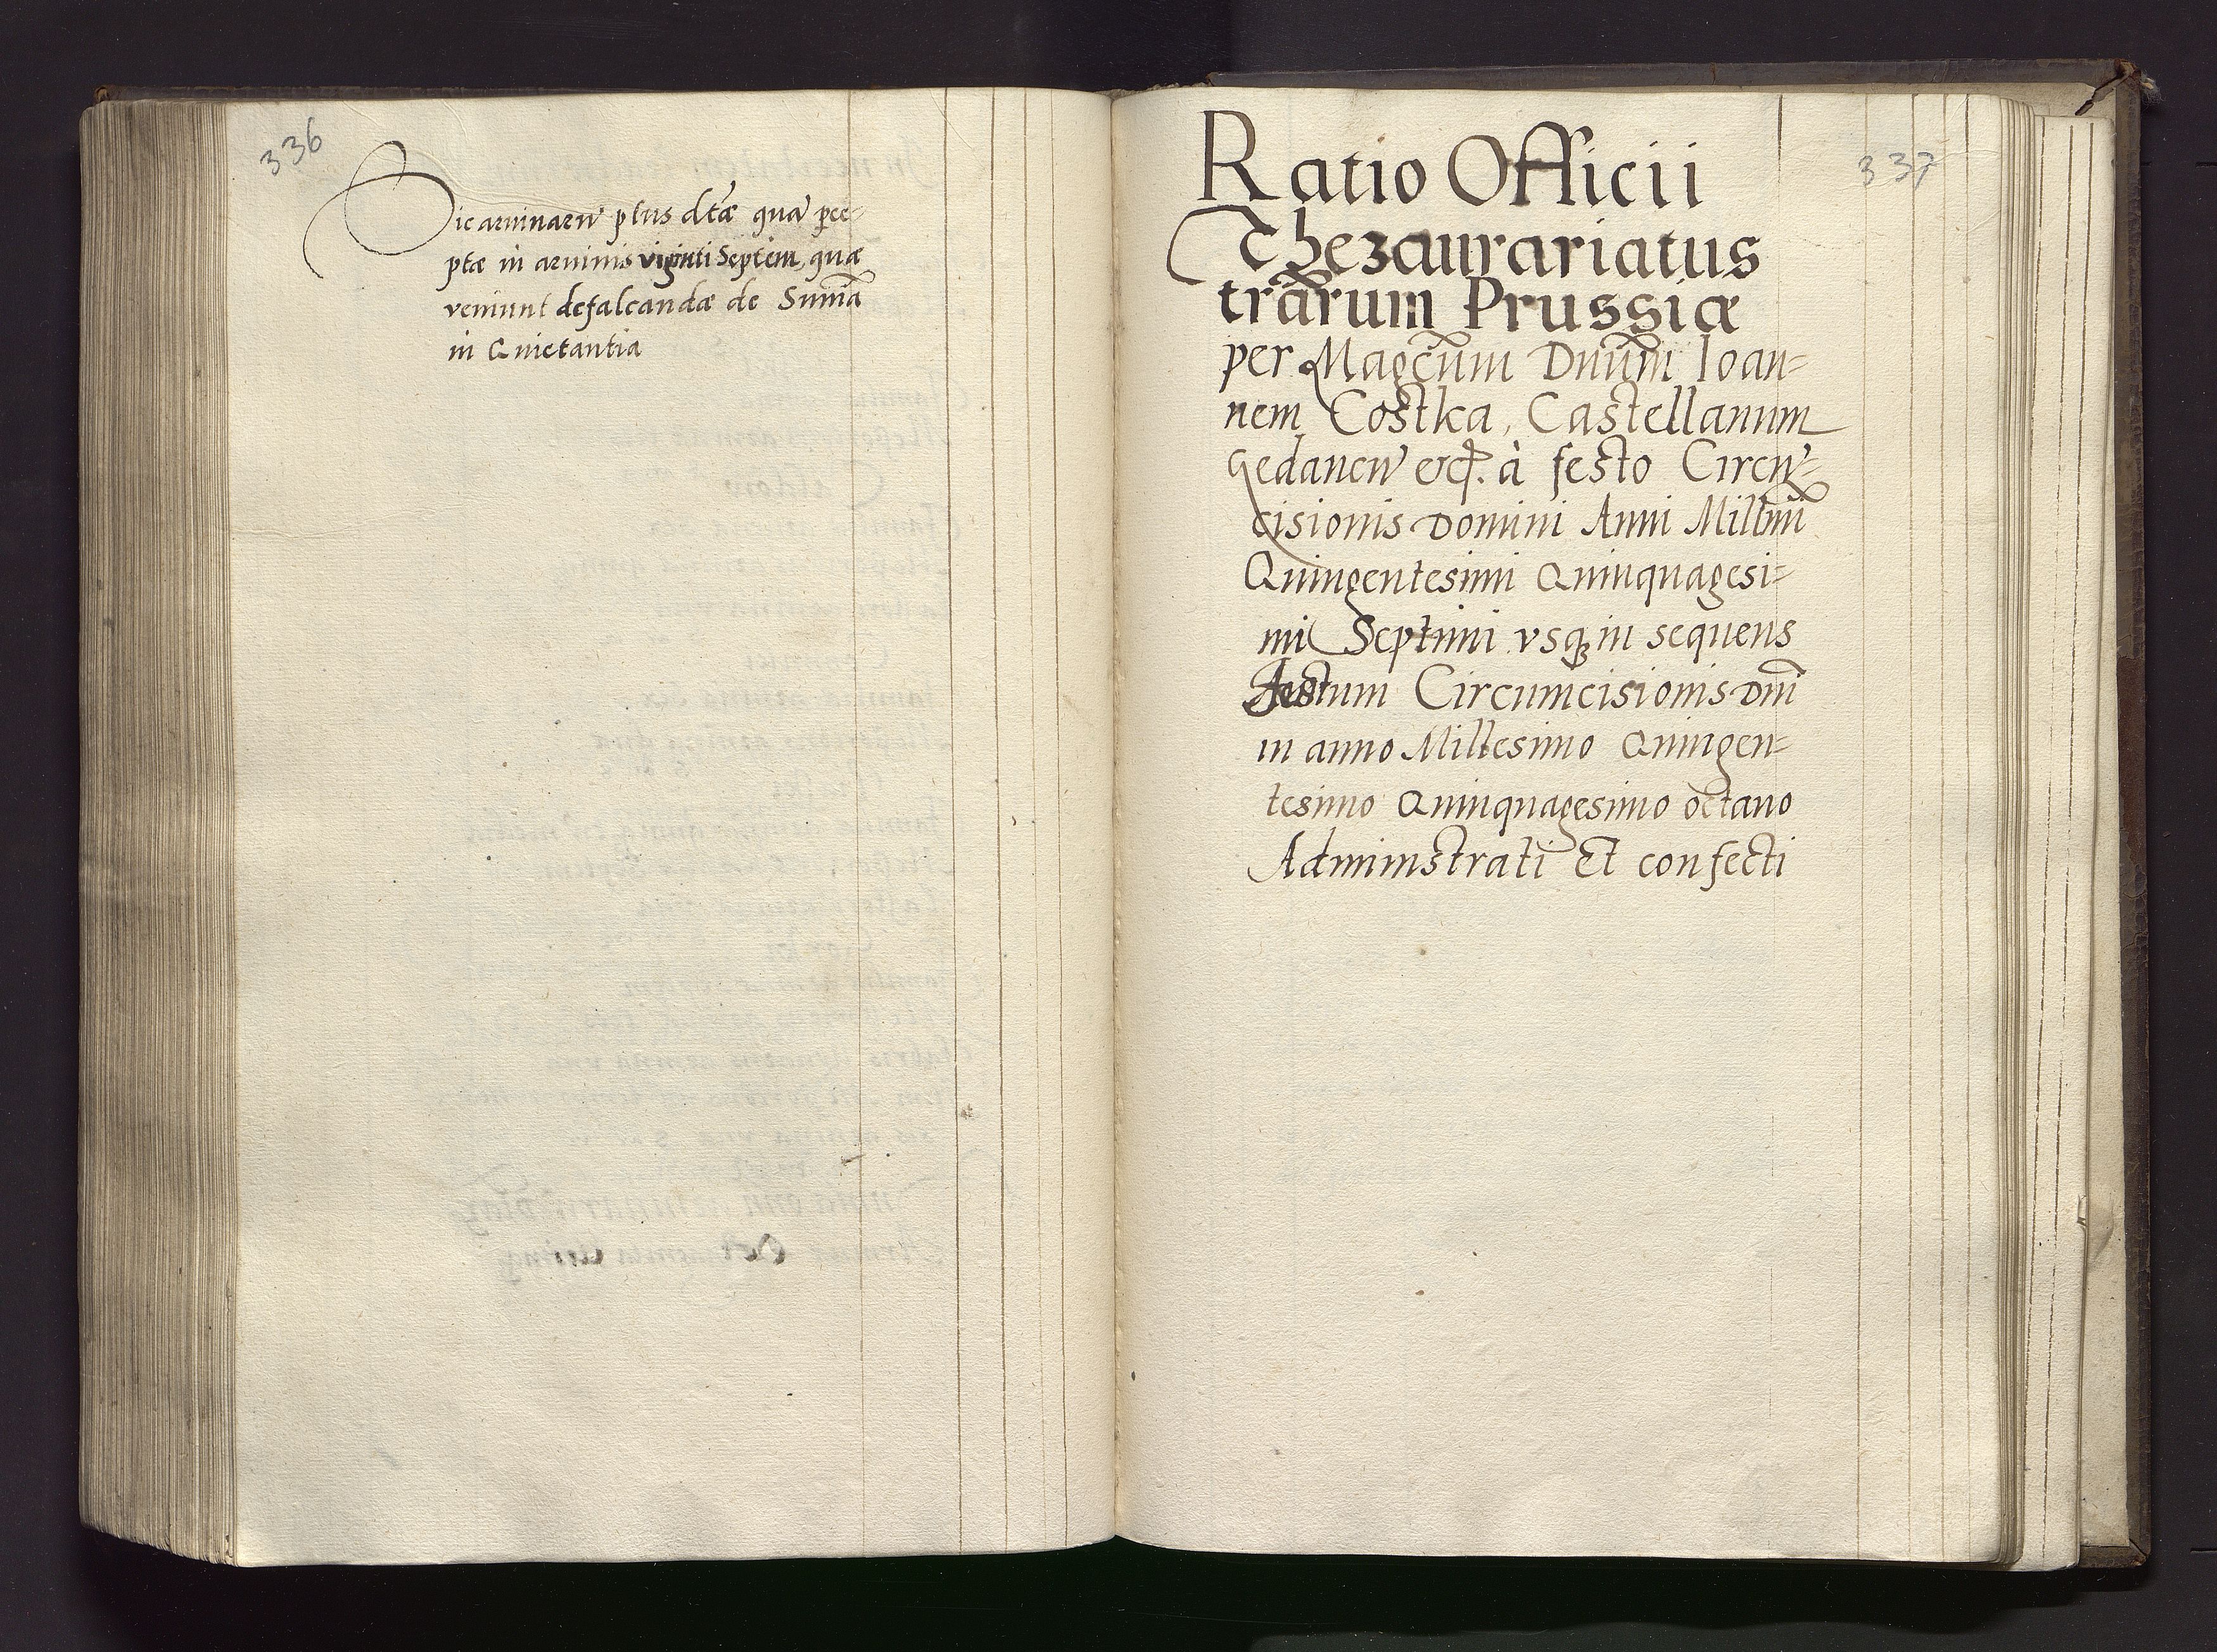 336
Sic arvinarū plus dtæ quā perce=
ptæ in arvinis viginti Septem, quæ
veniunt defalcandæ de Suma
in Quietantia
337
Ratio Officii
Thezaurariatus
trarum Prussiæ
per Magcum Dnum Ioan=
nem Costka, Castellanum
Gedanen̄ etc. à festo Circū=
cisionis Domini Anni Millmi
Quingentesimi Quinquagesi=
mi Septimi vsqȝ in sequens
festum Circumcisionis Dni
in anno Millesimo Quingen=
tesimo Quinquagesimo octauo
Administrati Et confecti